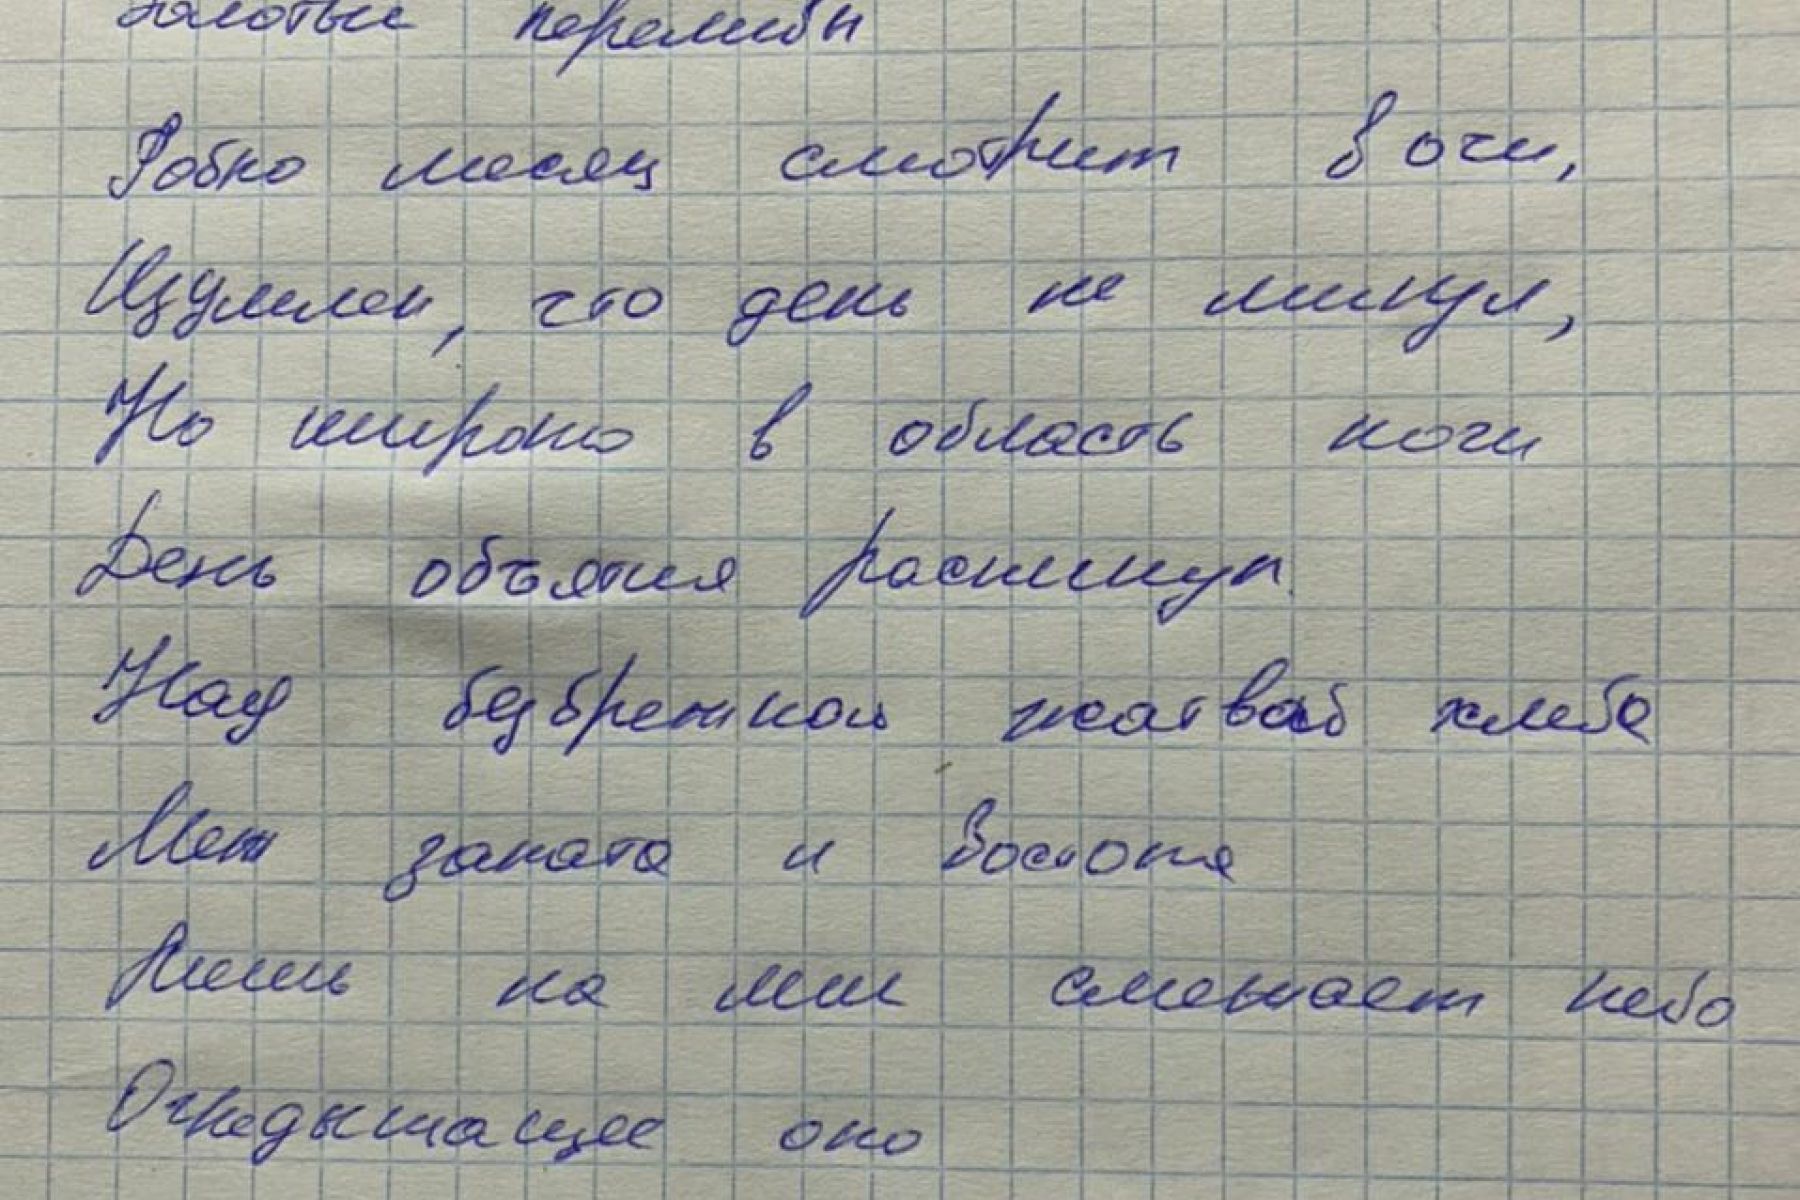 Золотые переливы
Робко месяц смотрит в очи,
Изумлен, что день не минул,
Но широко в область ночи
День объятия раскинул.
Над безбрежной жатвой хлеба
Меж заката и востока
Лишь на миг смежает небо
Огнедышащее око